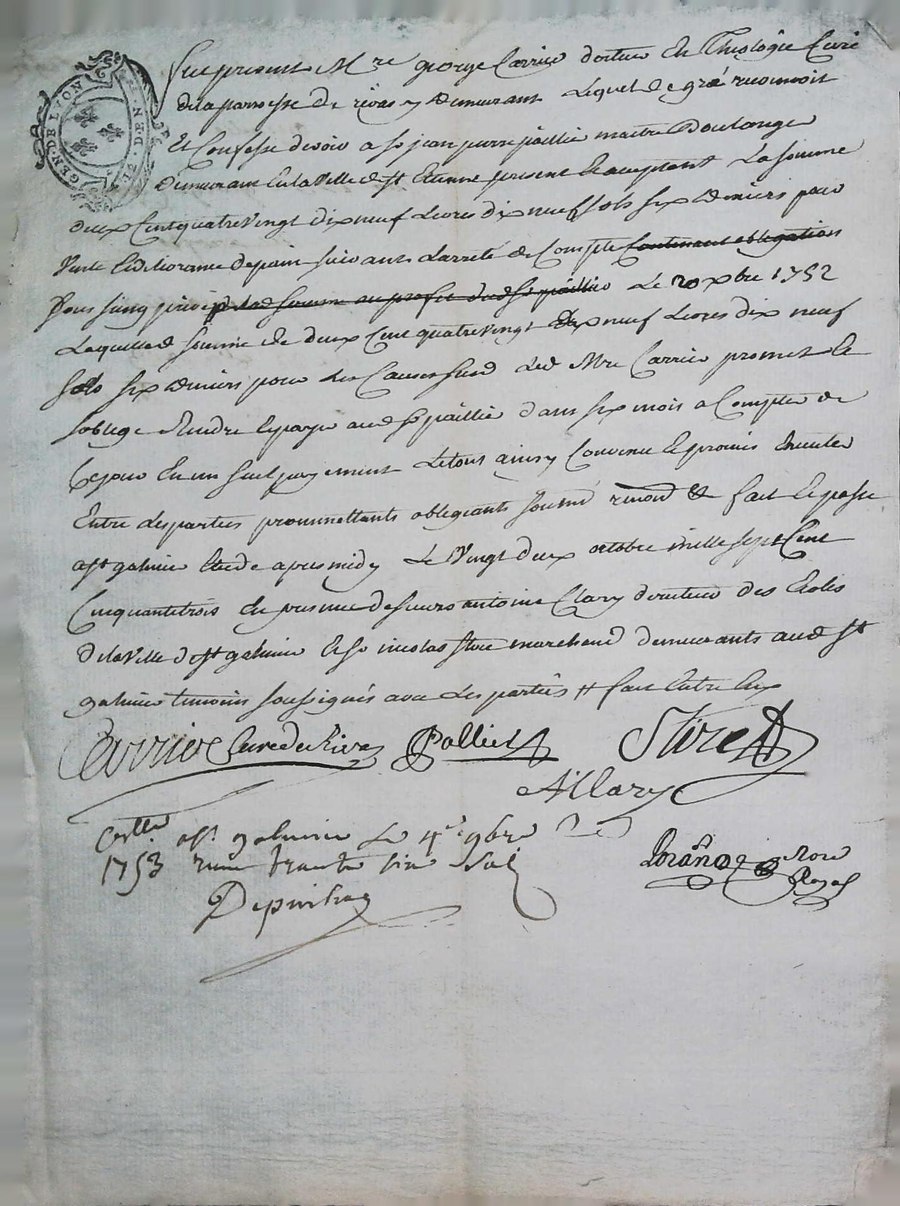 GEN. DE LYON
DEN.
Fut present Mre george Carrier docteur En Theologie Curé
dela parroisse De rivas y Demeurant Lequel De gré reconnoit
Et Confesse devoir a sr jean pierre paillie maitre Boulanger
Demeurant En la Ville de st Etienne present Et acceptant La somme
deux Cent quatre Vingt dix neuf Livres dix neuf sols six Deniers pour
Vente Et delivrance de pain suivant Larreté de Compte Contenant obligation
sous seing privé Le 20 xbre 1752
Laquelle d somme de deux Cent quatre Vingt dix neuf Livres dix neuf
sols six Deniers pour Les Causes susd Led Mre Carrier promet Et
soblige Rendre Et payer aud sr paillie dans six mois a Compter de
Ce jour En un seul payement Le tout ainsy Convenu Et promis Executer
Entre Les parties promettants obligeants soumé renonc & fait Et passé
a st galmier Etude apres midy Le Vingt deux octobre mille sept Cent
Cinquante trois En presence de sieurs antoine Clary directeur des Ecoles
dela Ville de st galmier Et sr nicolas Stire marchand demeurants aud st
galmier temoins soussignés avec Les parties # fait Entre Eux
Carrier Curé de Rivas Pallier Stire
A Clary
Collé a st galmier Le 4e 9bre
1753 reçu trente six sols
Nore
Royal